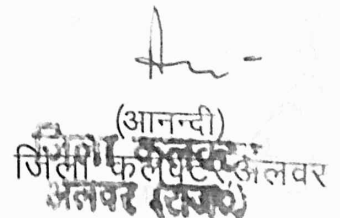 (आनन्दी)
जिला कलेक्टर,अलवर
जिला कलेक्टर
अलवर (राज०)